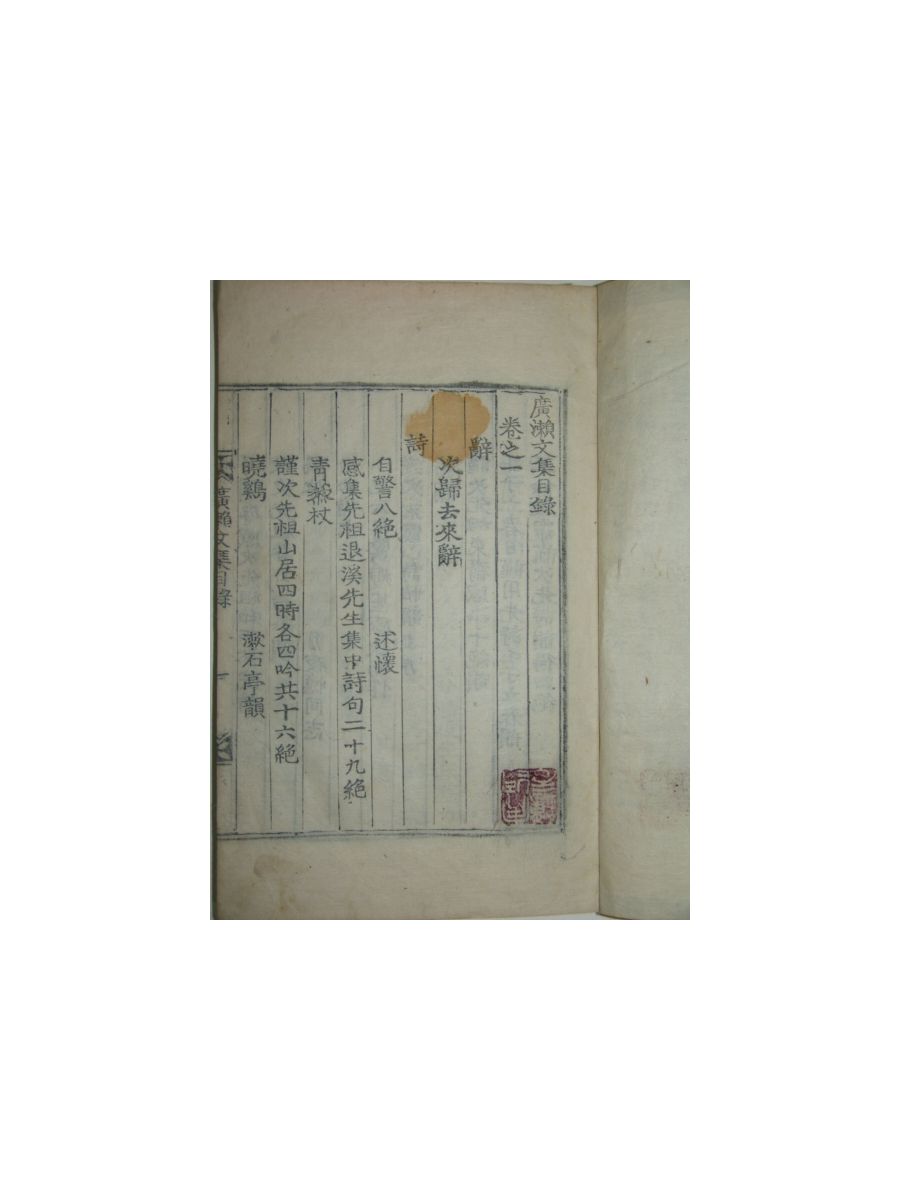 廣瀨文集目錄
卷之一
辭
次歸去來辭
詩
自警八絶 述懷
感集先祖退溪先生集中詩句二十九絶
靑藜杖
謹次先祖山居四時各四吟共十六絶
曉鷄 漱石亭韻
廣瀨文集目錄 一